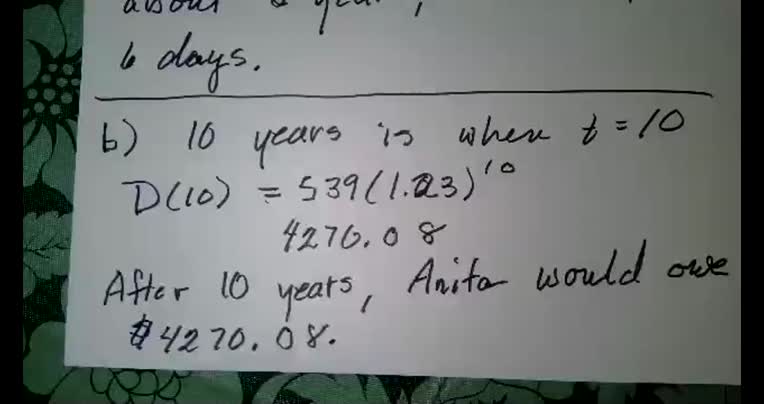 about a year,
6 days.
b) 10 years is when t = 10
D(10) = 539(1.23)^10
4270.08
After 10 years, Anita would owe
$4270.08.